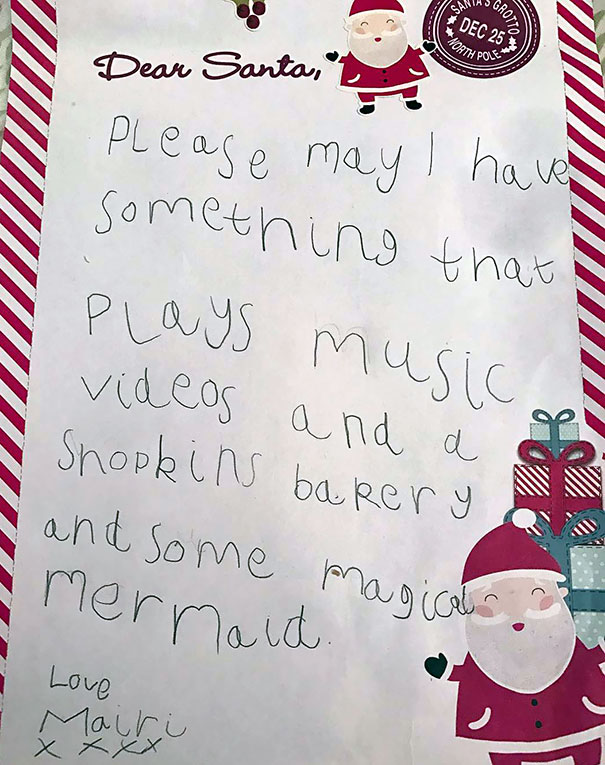 SANTA'S GROTTO
DEC 25
NORTH POLE
Dear Santa,
Please may I have
something that
Plays music
videos and a
Shopkins bakery
and some magical
mermaid.
Love
Mairi
x xxxx